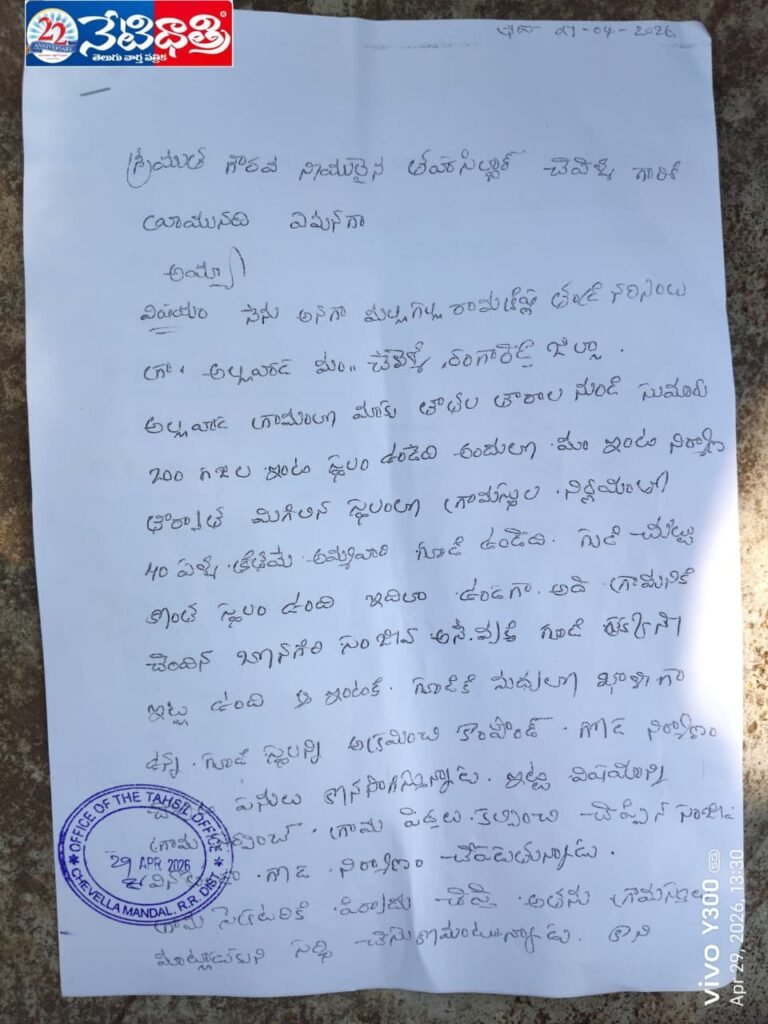 22
ANNIVERSARY
నేటిధాత్రి
తెలుగు వార్తా పత్రిక
29-04-2026
శ్రీయుత గౌరవ నీయులైన తహసిల్దార్ చేవెళ్ళ గారికి
అయ్యా
విషయం నేను అనగా తండ్రి నరసింలు
గ్రా. అల్లవాడ మం.. చేవెళ్ళ, రంగారెడ్డి జిల్లా.
అల్లవాడ గ్రామంలో మాకు తాతల తారాల నుండి సుమారు
200 గజల ఇంటి స్థలం ఉండేది అందులో మా ఇంటి నిర్మాణ
తర్వాత మిగిలిన స్థలంలో గ్రామస్థుల నిర్ణయంతో
40 ఏళ్ళ క్రితమే అమ్మవారి గూడి ఉండేది. గుడి చుట్టు
కొంత స్థలం ఉంది ఇదిలా ఉండగా. అదే గ్రామనికి
చెందిన సంజీవ్ అనే వ్యక్తి గూడి ప్రక్కనే
ఇల్లు ఉంది ఆ ఇంటికి. గూడికి మధ్యలో ఖాళీగా
ఉన్న. గూడి స్థలన్ని అక్రమించి కాంపౌండ్ గోడ నిర్మాణం
పనులు కొనసాగిస్తున్నాడు. ఇట్టి విషయాన్ని
గ్రామ గ్రామ పెద్దలు కల్పించి చెప్పిన
గోడ నిర్మాణం చేపడుతున్నాడు.
గ్రామ సెక్రటరికి పిర్యాదు చేస్తే అతను గ్రామస్థుల
మాట్లాడుకుని సర్ది చేసుకోమంటున్నాడు. కాని
OFFICE OF THE TAHSIL OFFICE
29 APR 2026
CHEVELLA MANDAL, R.R. DIST.
vivo Y300 5G
Apr 29, 2026, 13:30